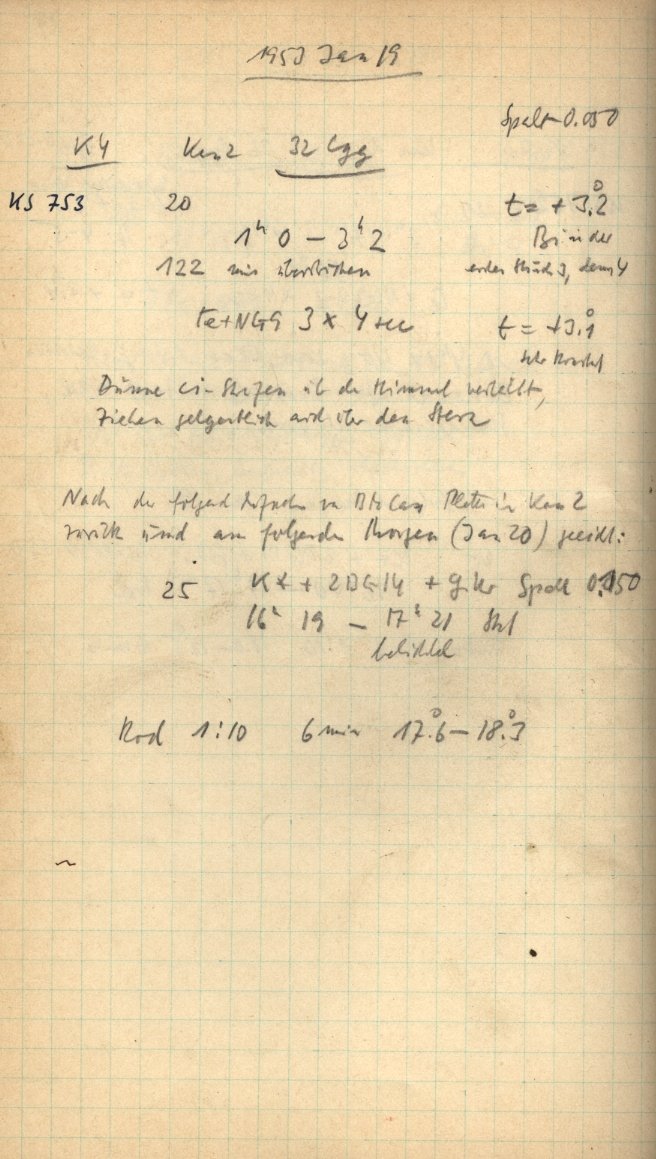 1953 Jan 19
Spalt 0.050
K4 Kam 2 32 Cyg
KS 753 20 t = + 3.°2
1ʰ 0 – 3ʰ 2 Bi in der
122 min überstrichen ersten Stunde 3, dann 4
Fe+NG9 3 x 4 sec t = +3.°1
Dünne Ci-Streifen üb. den Himmel verteilt,
ziehen gelegentlich auch über den Stern
Nach der folgend Aufnahme
zurück und am folgenden Morgen (Jan 20) geeicht:
25 + 2BG14 + Gitter Spalt 0.050
16ʰ 19 – 17ʰ 21
belichtet
Rod 1:10 6 min 17.°6 – 18.°3